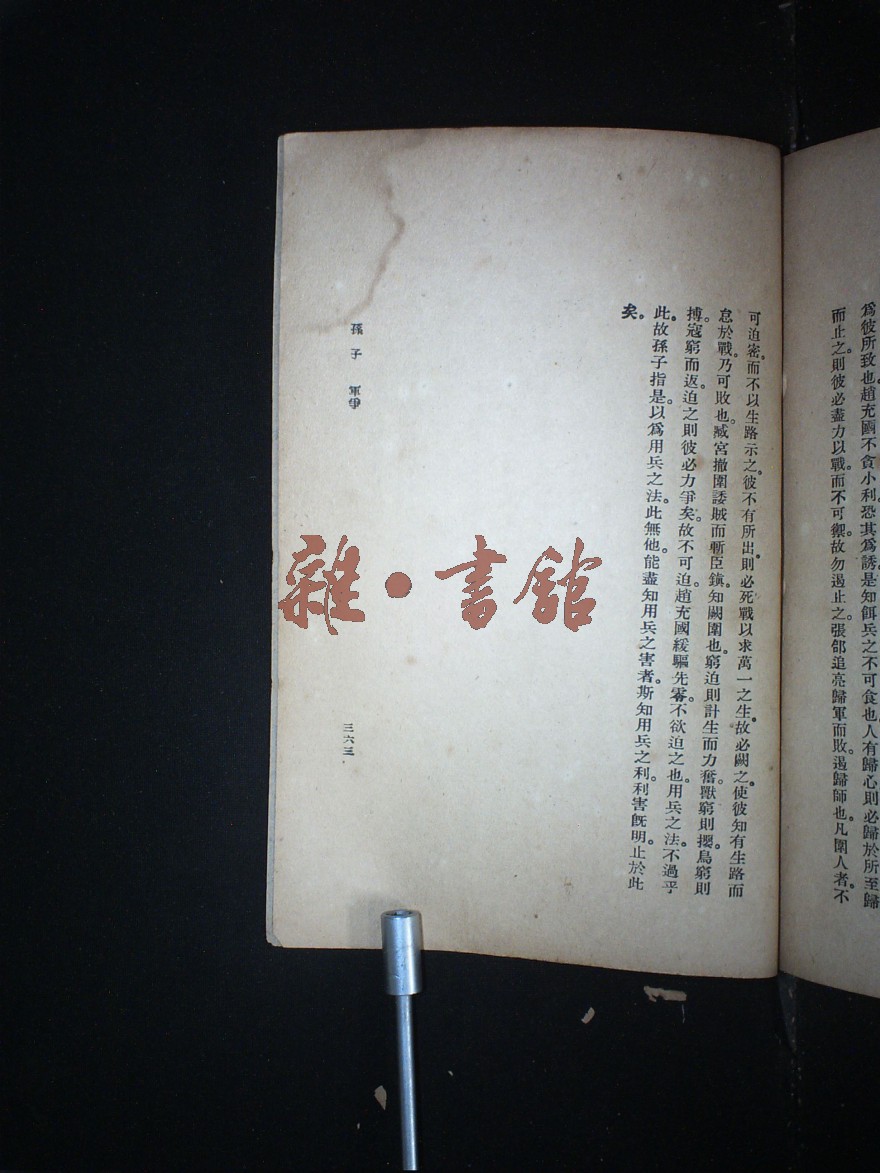 爲彼所致也。趙充國不貪小利。恐其爲誘。是知餌兵之不可食也。人有歸心。則必歸於所至。歸
而止之。則彼必盡力以戰。而不可禦。故勿遏止之。張郃追亮歸軍而敗。遏歸師也。凡圍人者。不
可迫密。而不以生路示之。彼不有所出。則必死戰以求萬一之生。故必闕之。使彼知有生路而
怠於戰。乃可敗也。臧宮撤圍諉賊而斬臣鎭。知闕圍也。窮迫則計生而力奮。獸窮則攫。鳥窮則
搏。寇窮而返迫之。則彼必力爭矣。故不可迫。趙充國緩驅先零。不欲迫之也。用兵之法。不過乎
此。故孫子指是以爲用兵之法。此無他。能盡知用兵之害者。斯知用兵之利。利害旣明。止於此
矣。
孫子 軍爭
三六三
雜·書館